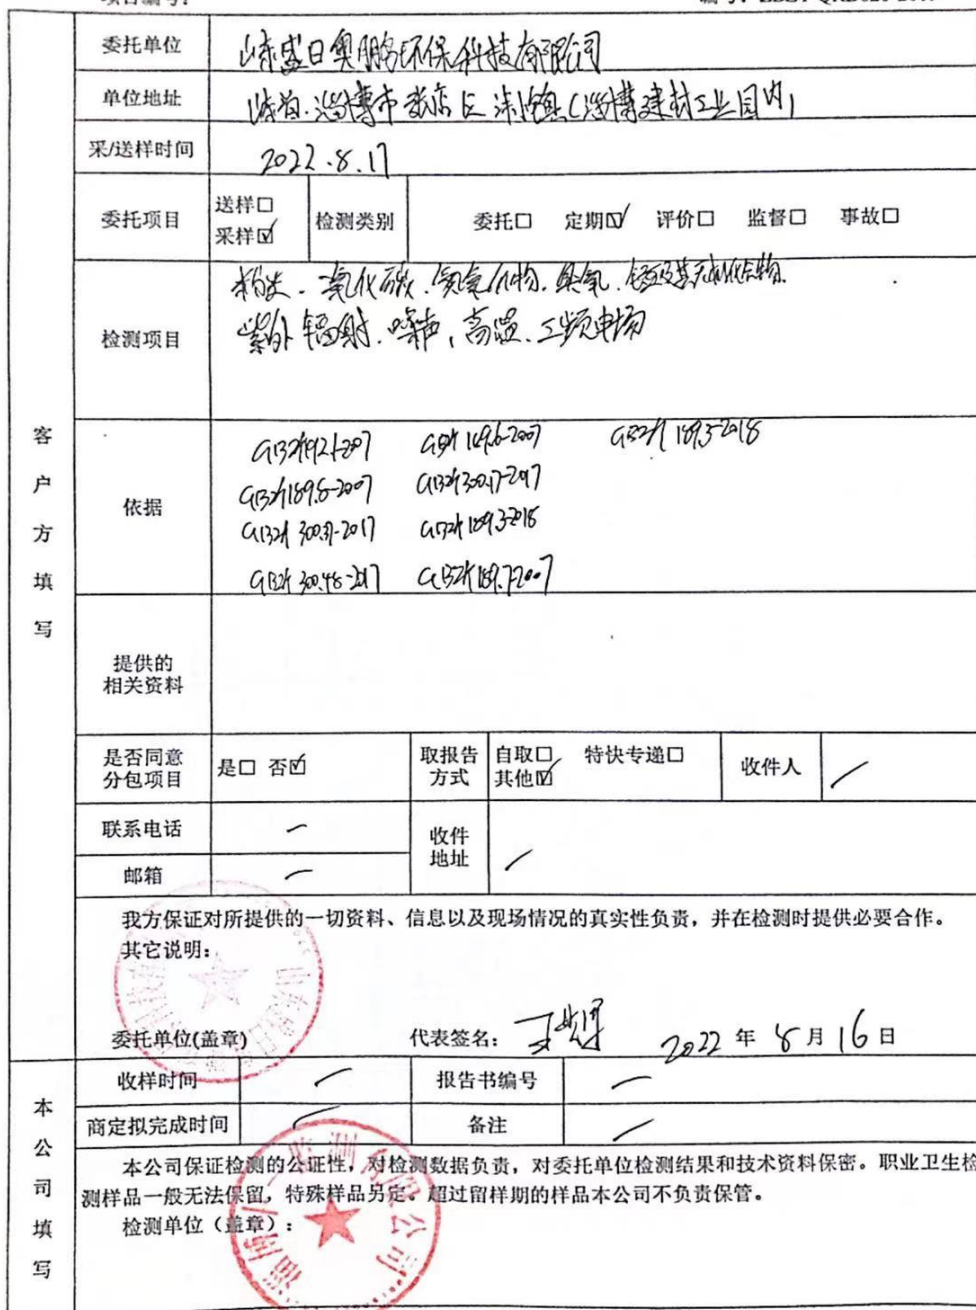 委托单位 山东盛日奥鹏环保科技有限公司
单位地址 山东省淄博市张店区沣水镇(淄博建材工业园内)
采/送样时间 2022.8.17
委托项目 送样□ 采样☑ 检测类别 委托□ 定期☑ 评价□ 监督□ 事故□
检测项目 粉尘、一氧化碳、氮氧化物、臭氧、锰及其无机化合物、
紫外辐射、噪声、高温、工频电场
客户方填写
依据 GBZ/T192.1-2007 GBZ/T 189.3-2018
GBZ/T189.8-2007 GBZ/T300.17-2017
GBZ/T 300.37-2017 GBZ/T 189.3-2018
GBZ/T 300.48-2017 GBZ/T 189.7-2007
提供的
相关资料
是否同意
分包项目 是□ 否☑ 取报告
方式 自取□ 特快专递□
其他☑ 收件人
联系电话 收件
地址
邮箱
我方保证对所提供的一切资料、信息以及现场情况的真实性负责，并在检测时提供必要合作。
其它说明：
委托单位(盖章) 代表签名： 2022 年 8 月 16 日
本公司填写
收样时间 报告书编号
商定拟完成时间 备注
本公司保证检测的公证性，对检测数据负责，对委托单位检测结果和技术资料保密。职业卫生检
测样品一般无法保留，特殊样品另定。超过留样期的样品本公司不负责保管。
检测单位（盖章）：